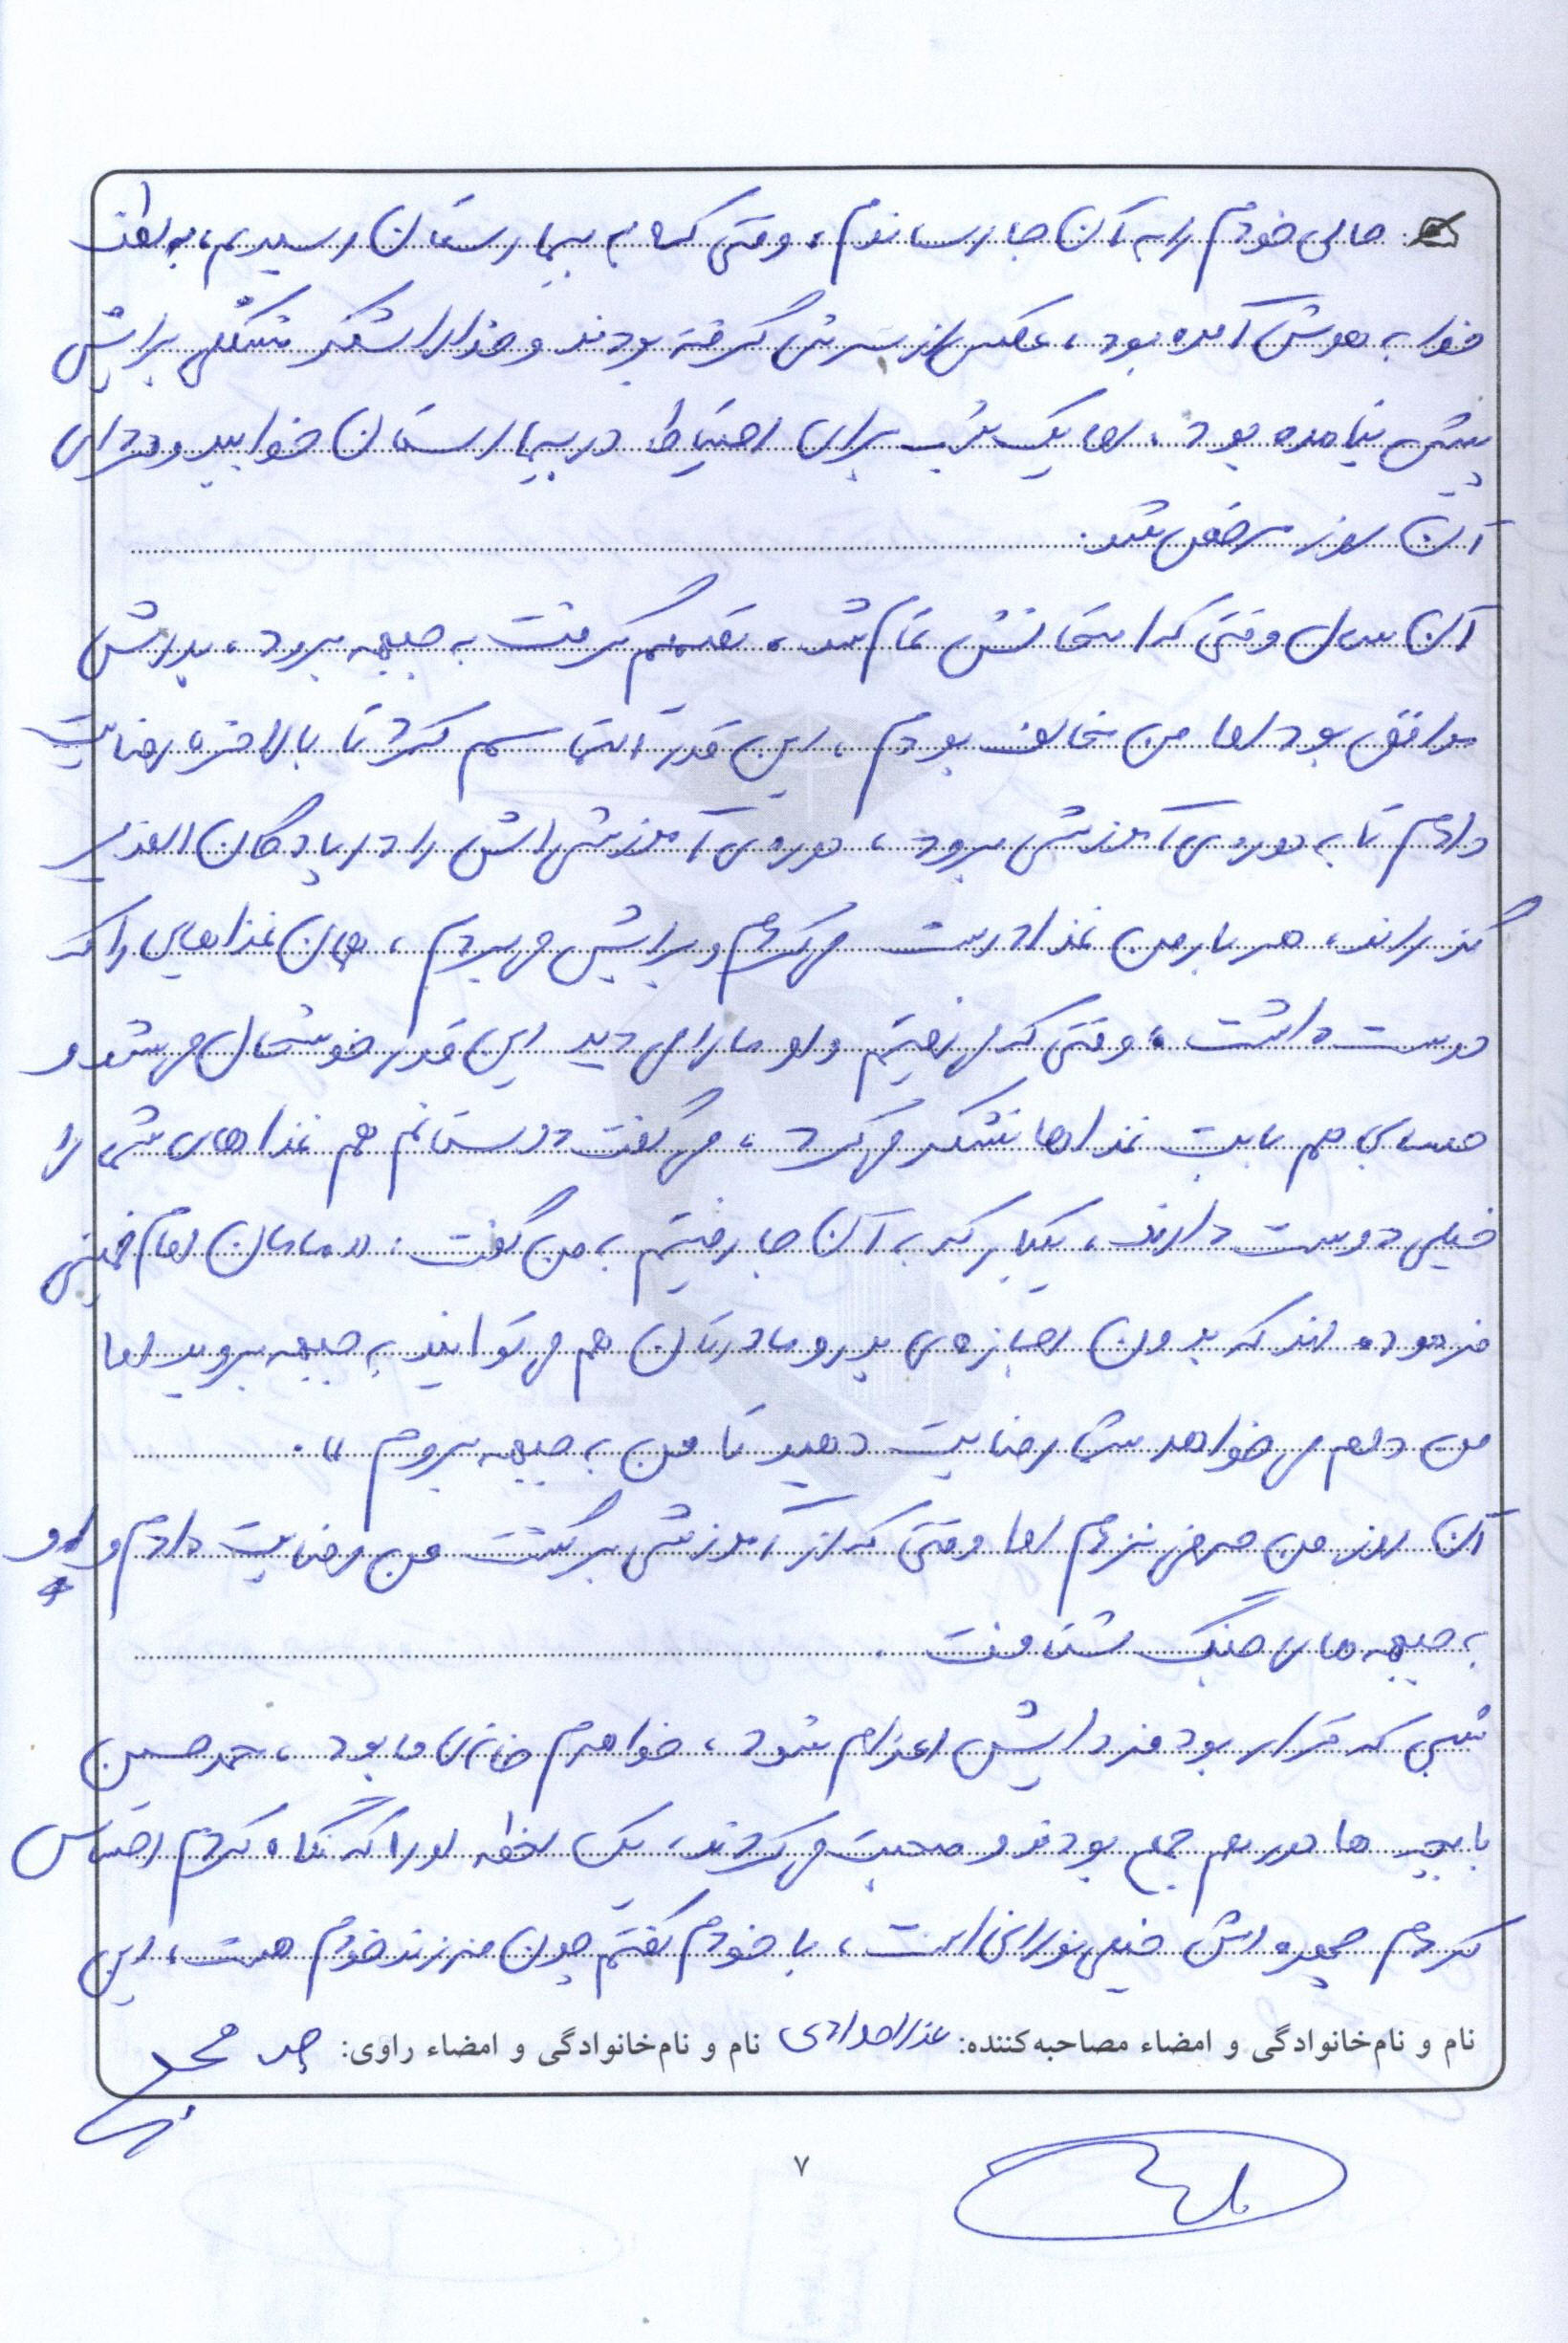 حالی خودم را به آن جا رساندم، وقتی که به بیمارستان رسیدیم، به لطف
خدا به هوش آمده بود، عکس از سرش گرفته بودند و خدا را شکر مشکلی برایش
پیش نیامده بود، اما یک شب برای احتیاط در بیمارستان خوابید و فردای
آن روز مرخص شد.
آن سال وقتی که امتحانش تمام شد، تصمیم گرفت به جبهه برود، پدرش
موافق بود اما من مخالف بودم، این قدر التماسم کرد تا بالاخره رضایت
دادم تا به دوره‌ی آموزشی برود، دوره‌ی آموزشی اش را در پادگان الغدیر
گذراند، هر بار من غذا درست می کردم و برایش می بردم، همان غذاهایی را که
دوست داشت، وقتی که می رفتیم و او ما را می دید این قدر خوشحال می شد و
حسابی هم بابت غذاها تشکر می کرد، می گفت دوستانم هم غذاهای شما را
خیلی دوست دارند، یکبار که به آن جا رفتیم به من گفت: «مامان امام خمینی
فرموده اند که بدون اجازه‌ی پدر و مادرتان هم می توانید به جبهه بروید اما
من دلم می خواهد شما رضایت دهید تا من به جبهه بروم».
آن روز من حرفی نزدم اما وقتی که از آموزشی برگشت من رضایت دادم و او
به جبهه های جنگ شتافت.
شبی که قرار بود فردایش اعزام شود، خواهرم خانه‌ی ما بود، محمدحسین
با بچه ها دور هم جمع بودند و صحبت می کردند، یک لحظه او را که نگاه کردم احساس
کردم چهره اش خیلی نورانی است، با خودم گفتم چون فرزند خودم هست، این
نام و نام‌خانوادگی و امضاء مصاحبه‌کننده: عذرا مرادی نام و نام‌خانوادگی و امضاء راوی:
۷